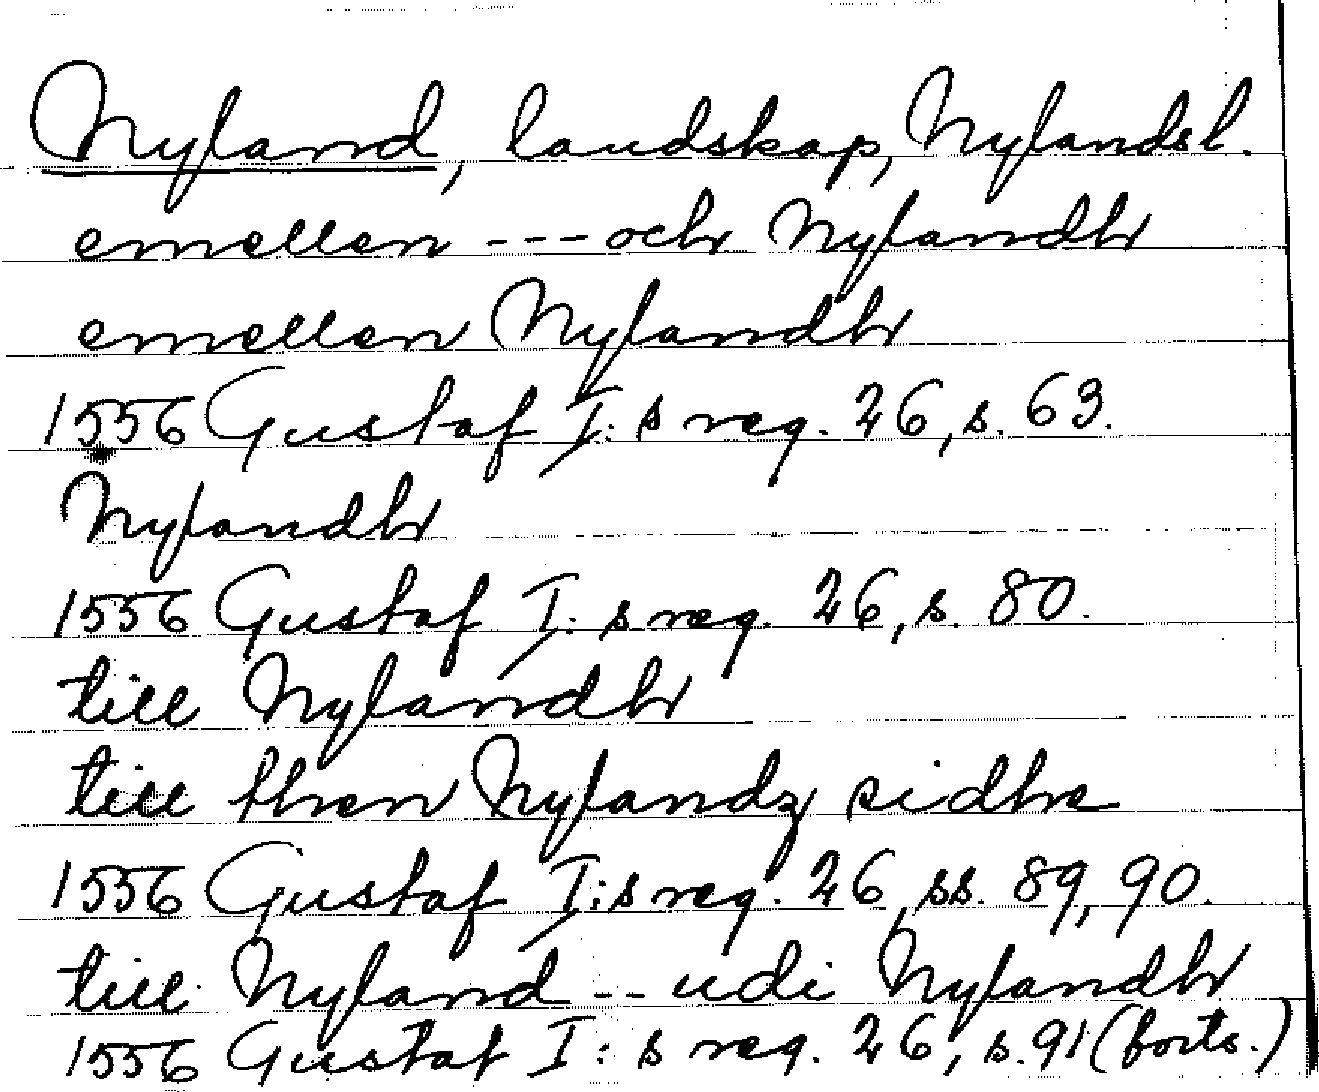 Nyland, landskap, Nylandsl.
emellen --- och Nylandh
emellen Nylandh
1556 Gustaf I:s reg. 26, s. 63.
Nylandh
1556 Gustaf I:s reg. 26, s. 80.
till Nylandh
till then Nylandz sidhe
1556 Gustaf I:s reg. 26, ss. 89, 90.
till Nyland -- udi Nylandh
1556 Gustaf I:s reg. 26, s. 91 (forts.)